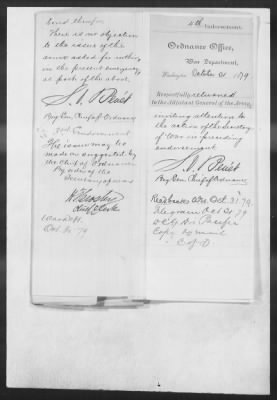 bond therefor.
There is no objection
to the issue of the
arms asked for within
in the present emergency
as part of the above.
S. V. Benét
Brig Gen, Chief of Ordnance
3rd Endorsement
The issue may be
made as suggested by
the Chief of Ordnance
By order of the
Secretary of War
Chief Clerk
War Dept.
Oct. 31 '79
4th Indorsement.
Ordnance Office,
War Department,
Washington October 31 1879
Respectfully returned
to the Adjutant General of the Army,
inviting attention to
the action of the Secretary
of War in preceding
endorsement
S. V. Benét
Brig Gen. Chief of Ordnance
Recd back Oct. 31 '79.
Telegram Oct 31 79
Pacific
Copy by mail